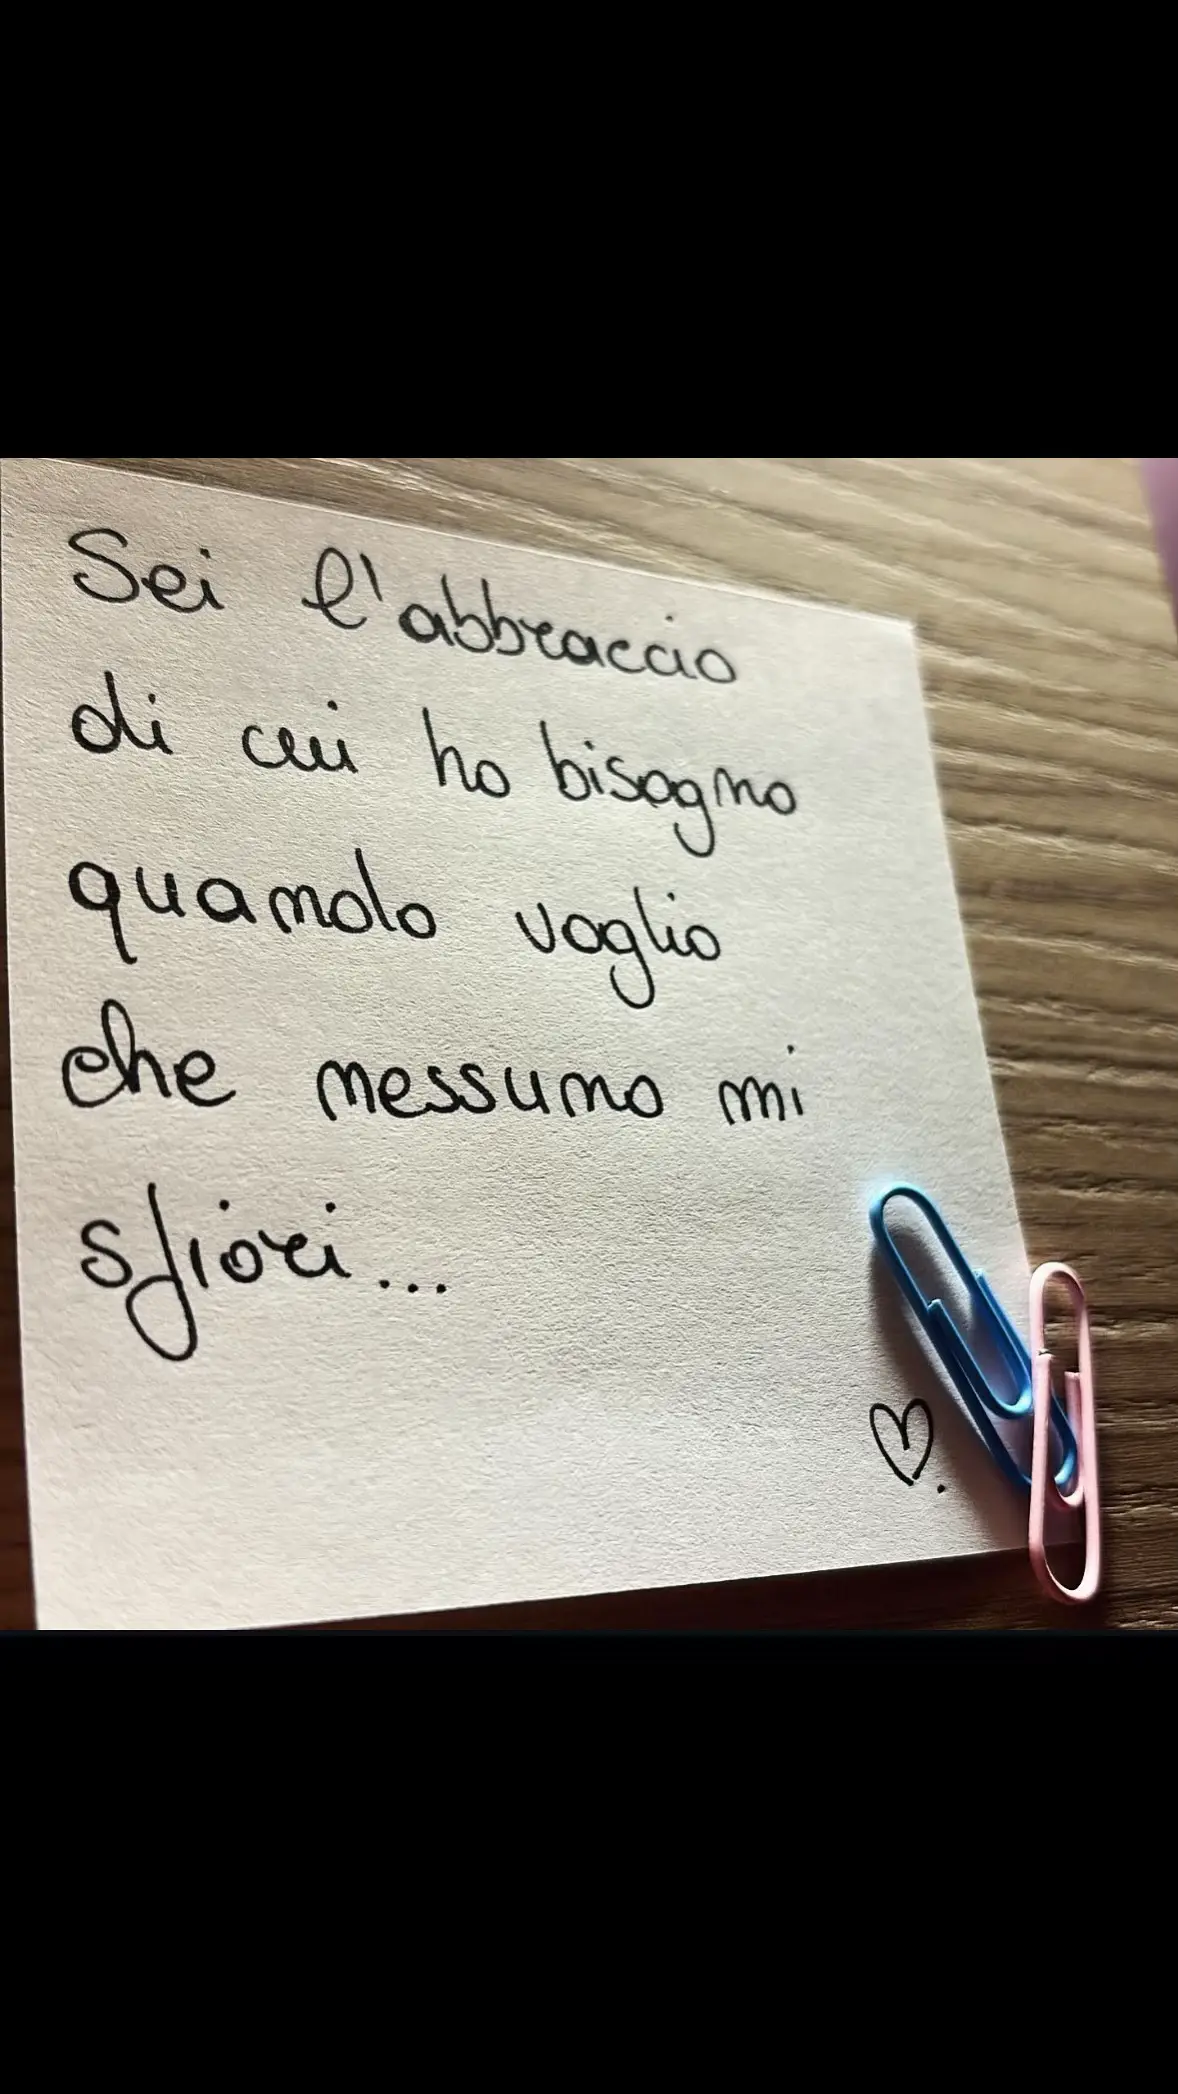 Sei l'abbraccio
di cui ho bisogno
quando voglio
che nessuno mi
sfiori...